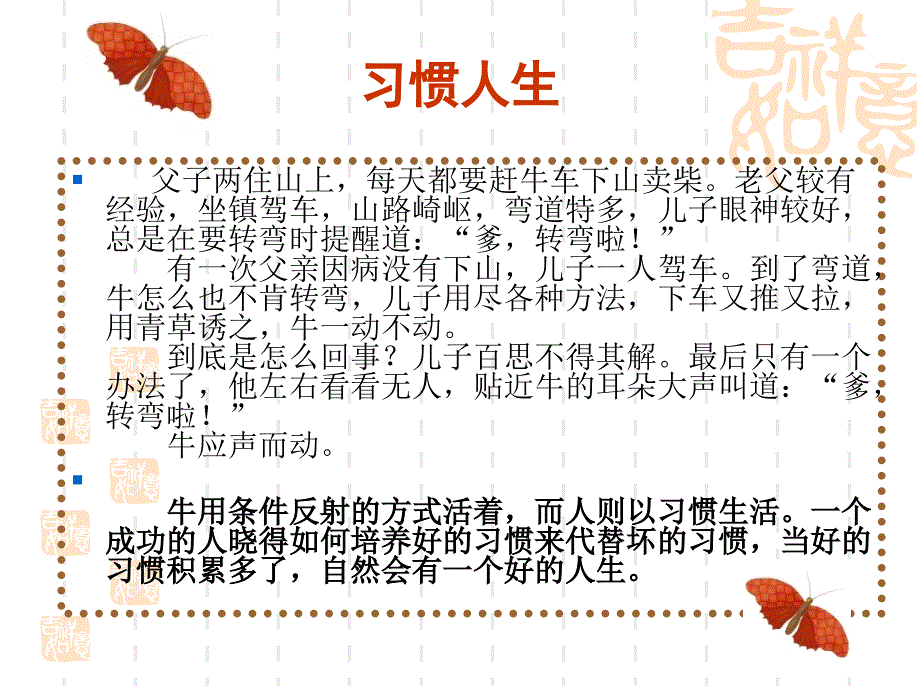 吉祥如意
习惯人生
父子两住山上，每天都要赶牛车下山卖柴。老父较有
经验，坐镇驾车，山路崎岖，弯道特多，儿子眼神较好，
总是在要转弯时提醒道：“爹，转弯啦！”
有一次父亲因病没有下山，儿子一人驾车。到了弯道，
牛怎么也不肯转弯，儿子用尽各种方法，下车又推又拉，
用青草诱之，牛一动不动。
到底是怎么回事？儿子百思不得其解。最后只有一个
办法了，他左右看看无人，贴近牛的耳朵大声叫道：“爹，
转弯啦！”
牛应声而动。
牛用条件反射的方式活着，而人则以习惯生活。一个
成功的人晓得如何培养好的习惯来代替坏的习惯，当好的
习惯积累多了，自然会有一个好的人生。
吉祥如意
吉祥如意
吉祥如意
吉祥如意
吉祥如意
吉祥如意